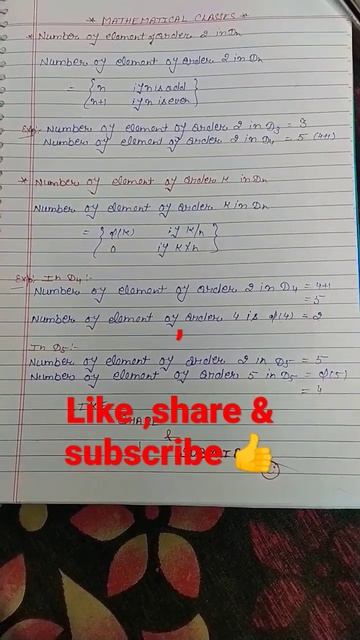 * MATHEMATICAL CLASSES *
* Number of element of order 2 in Dn
Number of element of order 2 in Dn
= { n if n is odd
n+1 if n is even }
Exp:- Number of element of order 2 in D3 = 3
Number of element of order 2 in D4 = 5 (4+1)
* Number of element of order K in Dn
Number of element of order K in Dn
= { φ(K) if K/n
0 if K∤n }
Exp:- In D4:-
Number of element of order 2 in D4 = 4+1
= 5
Number of element of order 4 is φ(4) = 2
,
In D5:-
Number of element of order 2 in D5 = 5
Number of element of order 5 in D5 = φ(5)
= 4
Like ,share &
subscribe 👍
&